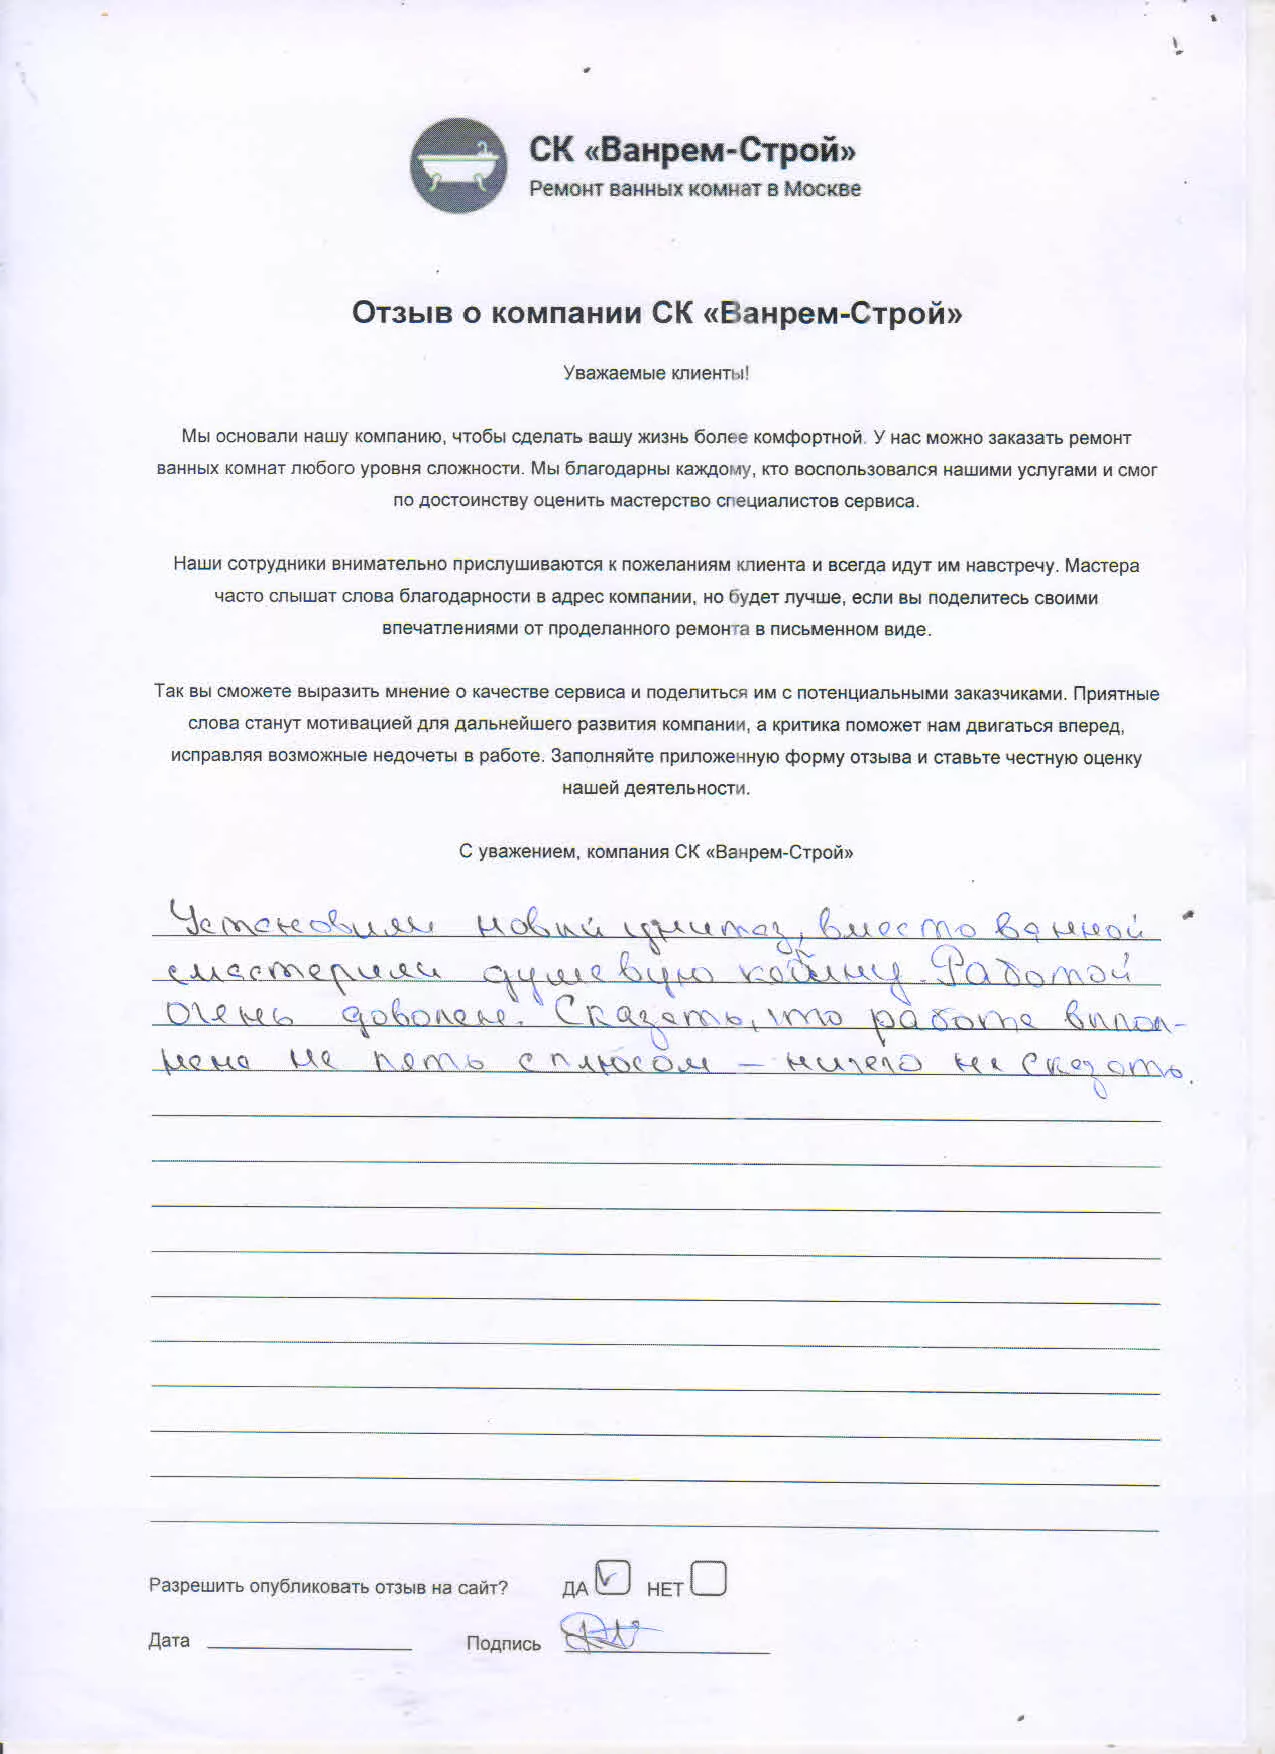 СК «Ванрем-Строй»
Ремонт ванных комнат в Москве
Отзыв о компании СК «Ванрем-Строй»
Уважаемые клиенты!
Мы основали нашу компанию, чтобы сделать вашу жизнь более комфортной. У нас можно заказать ремонт
ванных комнат любого уровня сложности. Мы благодарны каждому, кто воспользовался нашими услугами и смог
по достоинству оценить мастерство специалистов сервиса.
Наши сотрудники внимательно прислушиваются к пожеланиям клиента и всегда идут им навстречу. Мастера
часто слышат слова благодарности в адрес компании, но будет лучше, если вы поделитесь своими
впечатлениями от проделанного ремонта в письменном виде.
Так вы сможете выразить мнение о качестве сервиса и поделиться им с потенциальными заказчиками. Приятные
слова станут мотивацией для дальнейшего развития компании, а критика поможет нам двигаться вперед,
исправляя возможные недочеты в работе. Заполняйте приложенную форму отзыва и ставьте честную оценку
нашей деятельности.
С уважением, компания СК «Ванрем-Строй»
Установили новый унитаз, вместо ванной
смастерили душевую кабину. Работой
очень доволен. Сказать, что работа выпол-
нена на пять с плюсом – ничего не сказать.
Разрешить опубликовать отзыв на сайт? ДА НЕТ
Дата Подпись